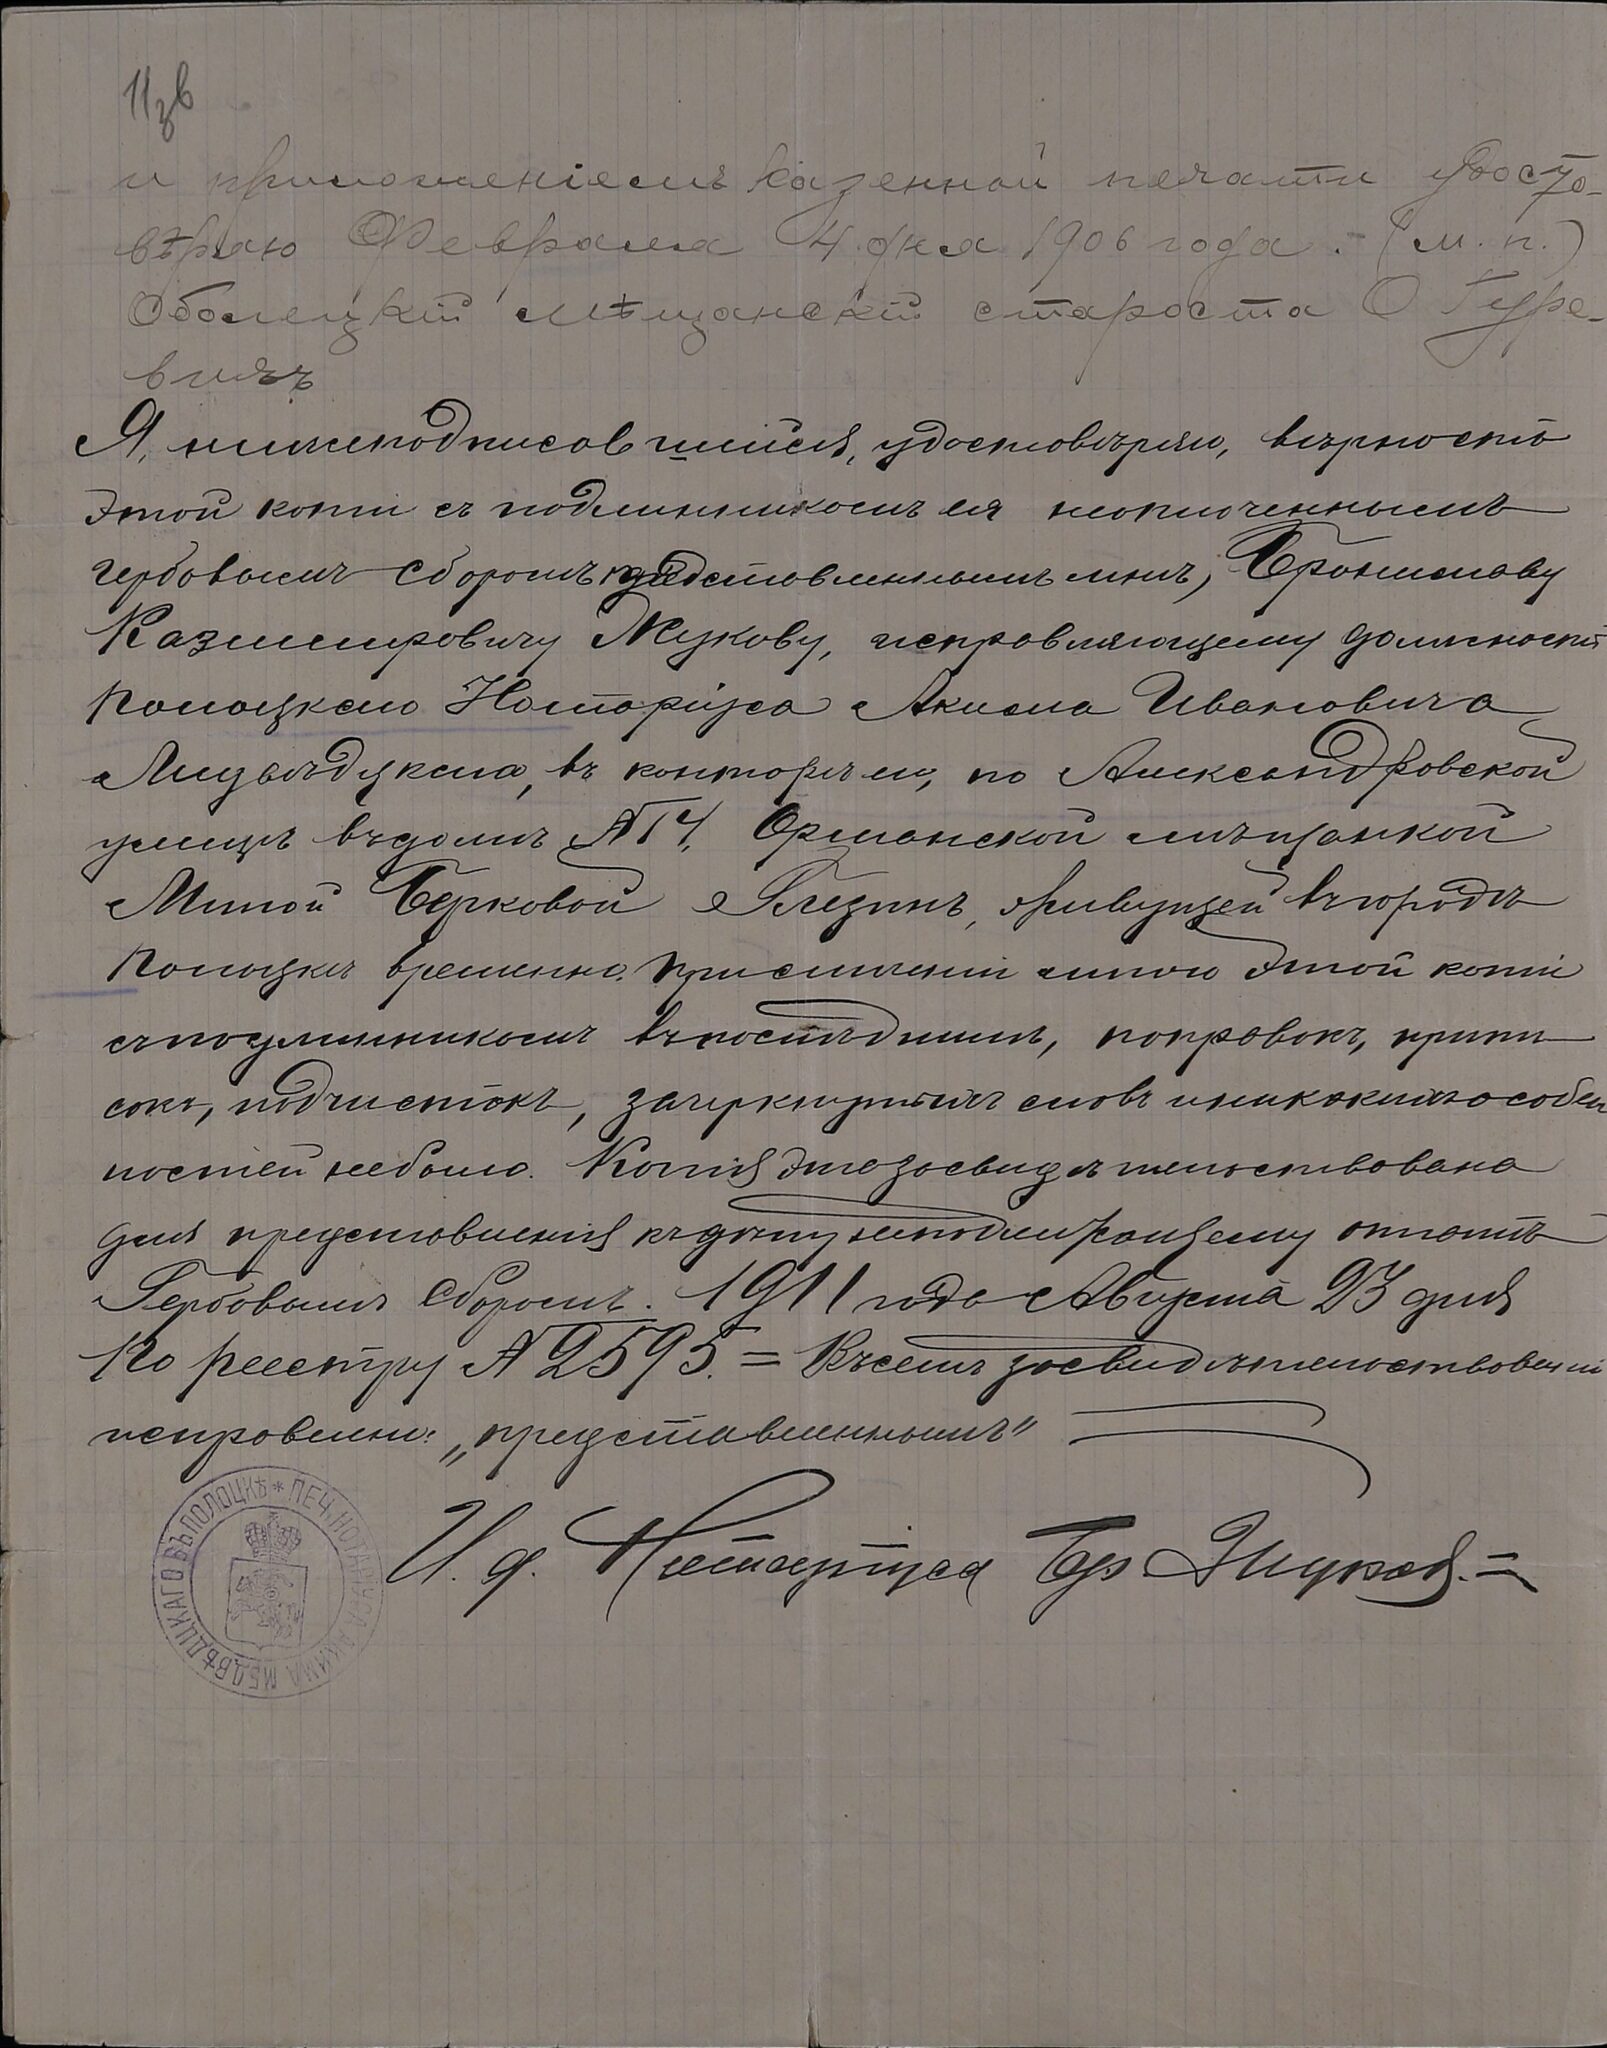 11зв
и приложеніемъ казенной печати удосто-
вѣряю Февраля 4 дня 1906 года. (м. п.)
Оболецкій мѣщанскій староста О Гуре-
вичъ
Я, нижеподписавшійся, удостовѣряю, вѣрность
этой копіи съ подлинникомъ ея неоплоченнымъ
гербовымъ сборомъ представленнымъ мнѣ, Брониславу
Казимировичу Жукову, исправляющему должность
Полоцкаго Нотаріуса Акима Ивановича
въ конторѣ его, по Александровской
улицѣ въ домѣ №14, Оршанской мѣщанкой
Миной Берковой живущей въ городѣ
Полоцкѣ временно. При сличеніи мною этой копіи
съ подлинникомъ въ послѣднимъ, поправокъ, припи
сокъ, подчистокъ, зачеркнутыхъ словъ и никакихъ особен
ностей не было. Копія эта засвидѣтельствована
для представленія къ дѣлу неподлежащему оплатѣ
Гербовымъ сборомъ. 1911 года Августа 23 дня
По реестру №2595. = Въ семъ засвидѣтельствованіи
исправлено: „представленнымъ"
И. д. Нотаріуса Бр Жуковъ. =
ПЕЧ. НОТАРІУСА АКИМА МЕДВѢДЦКАГО ВЪ ПОЛОЦКѢ *